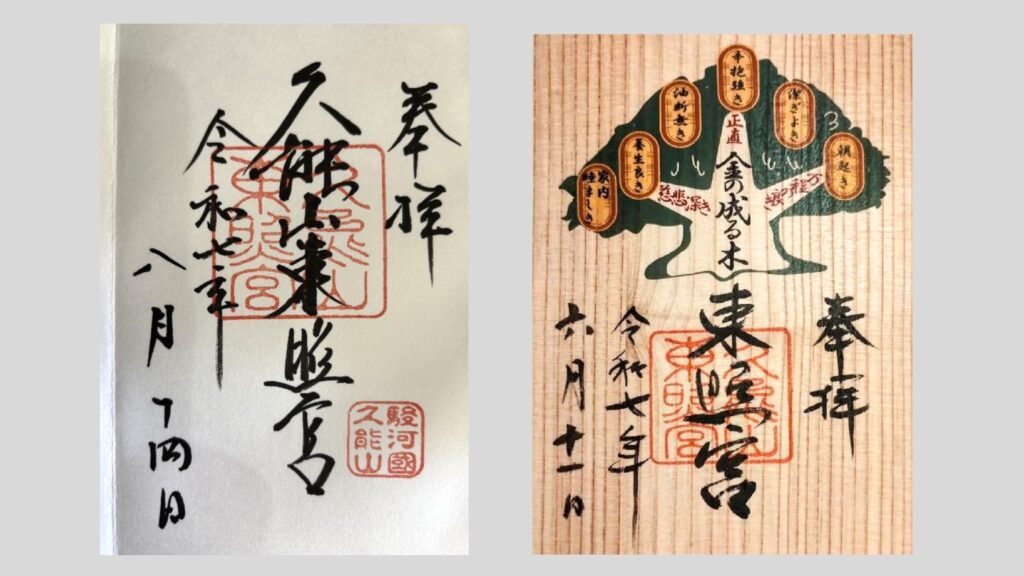 奉拝
久能山東照宮
久能山
東照宮
駿河國
久能山
令和七年
八月十四日
朝起き
潔ぎよき
辛抱強き
油断無き
養生良き
家内
睦ましき
正直
慈悲深き
金の成る木
奉拝
東照宮
久能山
東照宮
令和七年
六月十一日